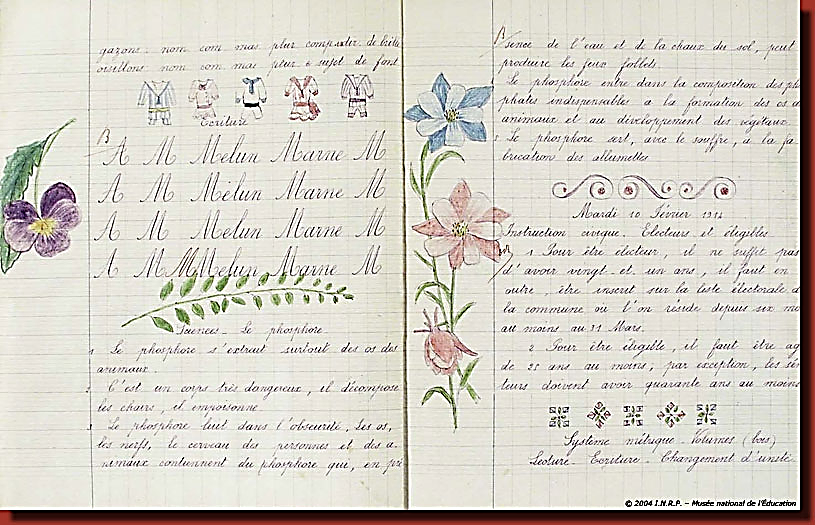 gazons. nom com mas plur
oisillons nom com mas plur
Ecriture
B
A M Melun Marne M
A M Melun Marne M
A M Melun Marne M
A M M Melun Marne M
Sciences _ Le phosphore.
1 Le phosphore s'extrait surtout des os des
animaux.
2 C'est un corps très dangereux, il décompose
les chairs, il empoisonne.
3 Le phosphore luit dans l'obscurité. Les os,
les nerfs, le cerveau des personnes et des a-
nimaux contiennent du phosphore que, en pré
B
sence de l'eau et de la chaux du sol, peut
produire les feux follets.
Le phosphore entre dans la composition des pho
phates indispensables à la formation des os d
animaux et au développement des végétaux
5 Le phosphore sert, avec le souffre, à la fa
brication des allumettes
Mardi 10 Février 1914
Instruction civique. Electeurs et éligibles
1 Pour être électeur, il ne suffit pas
d'avoir vingt et un ans, il faut en
outre, être inscrit sur la liste électorale d
la commune où l'on réside depuis six mo
au moins au 31 Mars.
2 Pour être éligible, il faut être ag
de 25 ans au moins; par exception, les sén
teurs doivent avoir quarante ans au moins
Système métrique _ Volumes (bois)
Lecture _ Ecriture _ Changement d'unité
© 2004 I.N.R.P. – Musée national de l'Éducation